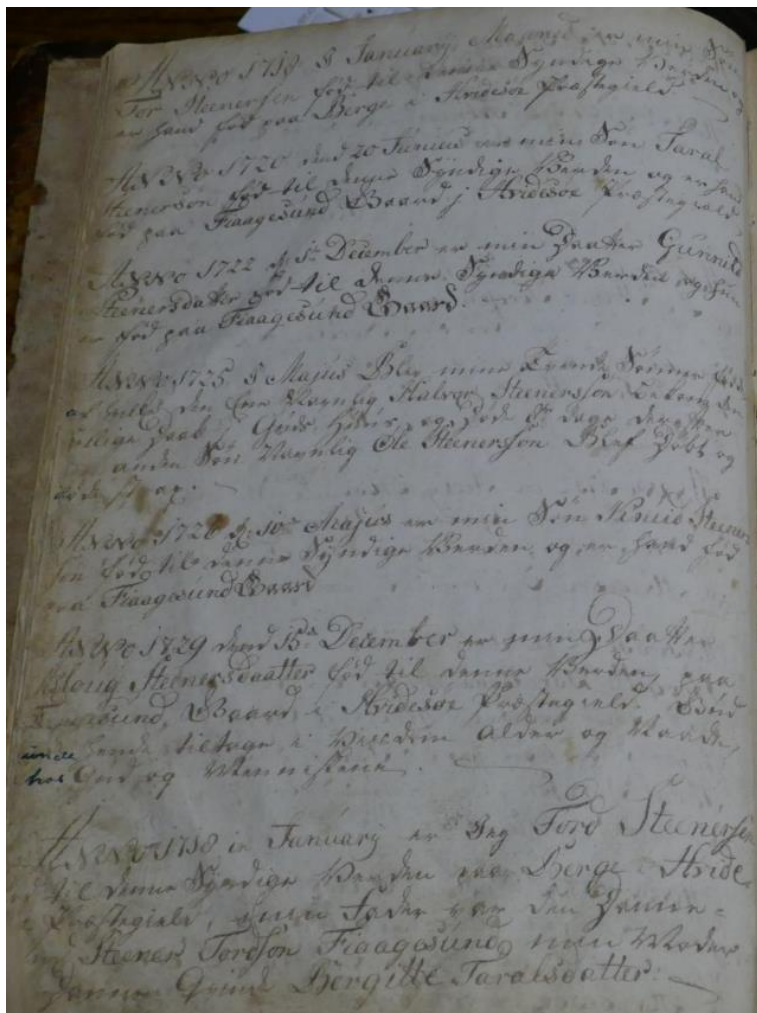 ANNO 1718 I January er min Søn
Tor Steenersen født til denne Syndige Verden og
er hand født paa Berge i Hvidesøe Præstegield
ANNO 1720 dend 20 Junius er min Søn Taral
Steenersøn født til denne Syndige Verden og er hand
født paa Fiaagesund Gaard i Hvidesøe Præstegield
ANNO 1722 d. December er min Daatter Gunnild
Steenersdatter født til denne Syndige Verden og hun
er født paa Fiaagesund Gaard.
ANNO 1725 I Majus Blev mine Tvende Sønner født
den Ene Navnlig Halvor Steenersøn bekom den
hellige Daab i Guds Huus, og døde 8 dage derefter
anden Søn Navnlig Ole Steenerson Blef Døbt og
døde
ANNO 1726 d. 10 Majus er min Søn Steener
søn født til denne Syndige Verden og er hand født
paa Fiaagesund Gaard
ANNO 1729 dend 15 December er min Daatter
Steenersdaatter født til denne Verden, paa
Gaard, i Hvidesøe Præstegield. Gud
hende tiltage i Viisdom Alder og Naade,
unde
hos Gud og Menniskene.
ANNO 1718 in January er Jeg Tord Steenersen
til denne Syndige Verden paa Berge Hvide
Præstegield, min Fader var den Danne-
Steener Tordsøn Fiaagesund, min Moder
Danne Qvinde Bergitte Taralsdatter.